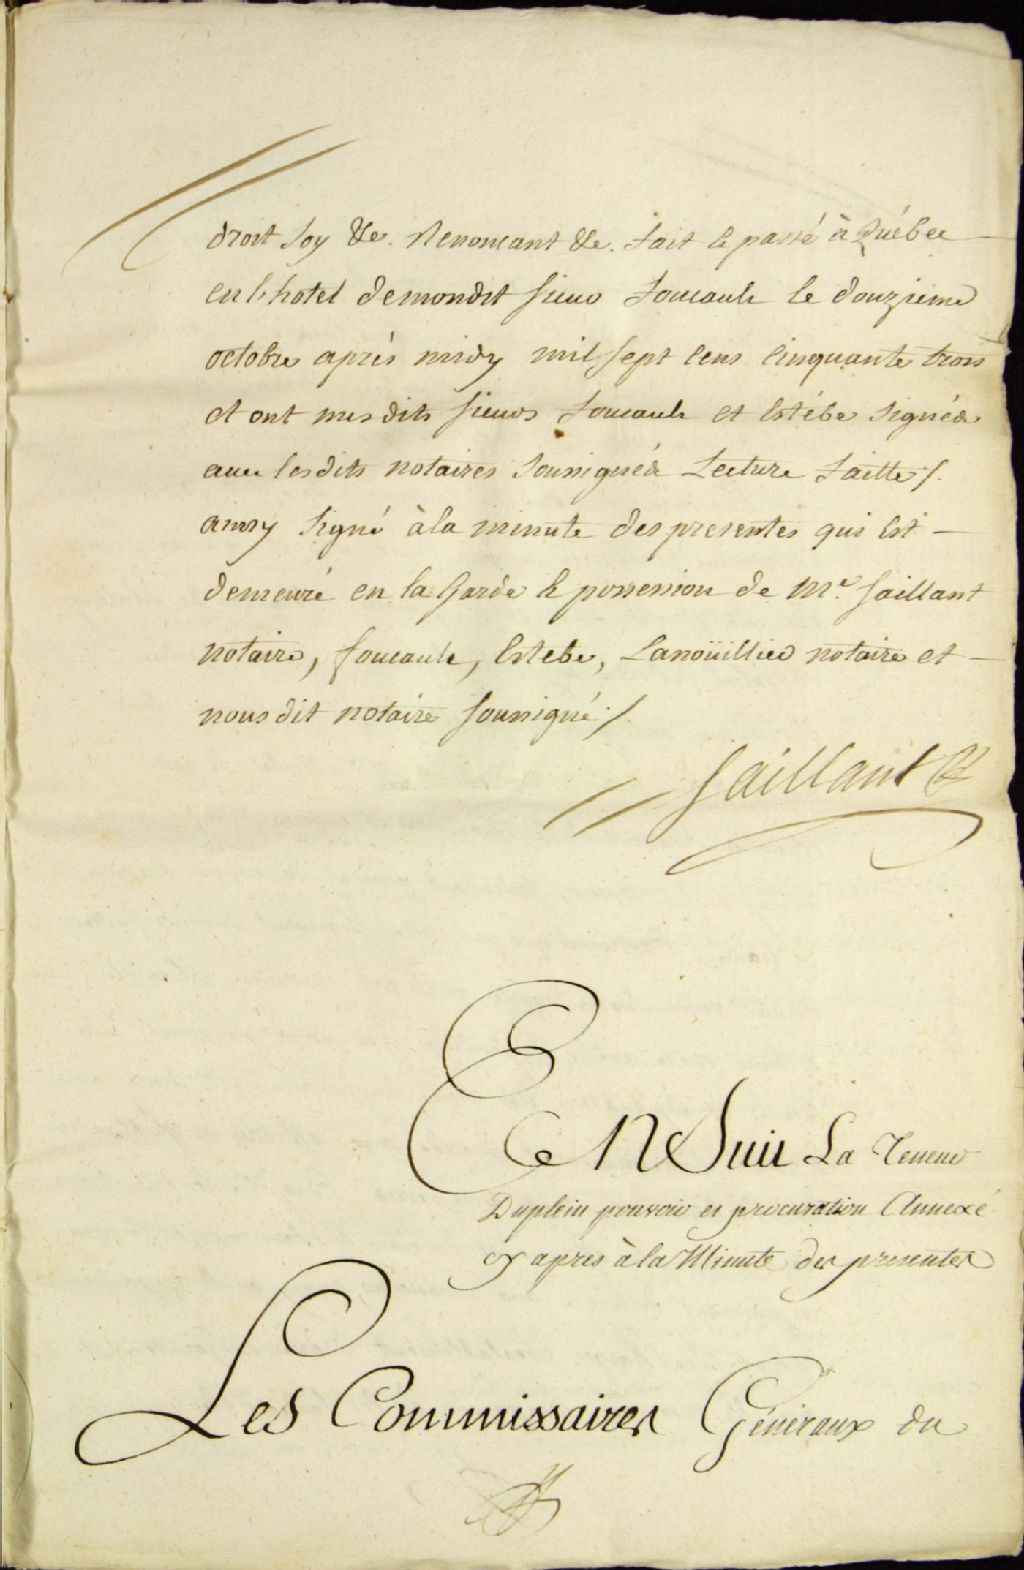 droit soy &c. Renoncant &c. fait & passé à Québec
en l'hotel de mondit sieur Foucault le douzieme
octobre après midy mil sept cens cinquante trois
et ont mes dits sieurs Foucault et Estébe signés
avec les dits notaires soussignés Lecture faitte /.
ainsy signé à la minute des presentes qui est
demeuré en la Garde & possession de Me. Saillant
notaire, foucault, Estebe, Lanoüillier notaire et
nous dit notaire soussigné ./.
Saillant
Ensuit La Teneur
Du plein pouvoir et procuration Annexé
cy apres à la Minute des presentes
Les Commissaires Géneraux du